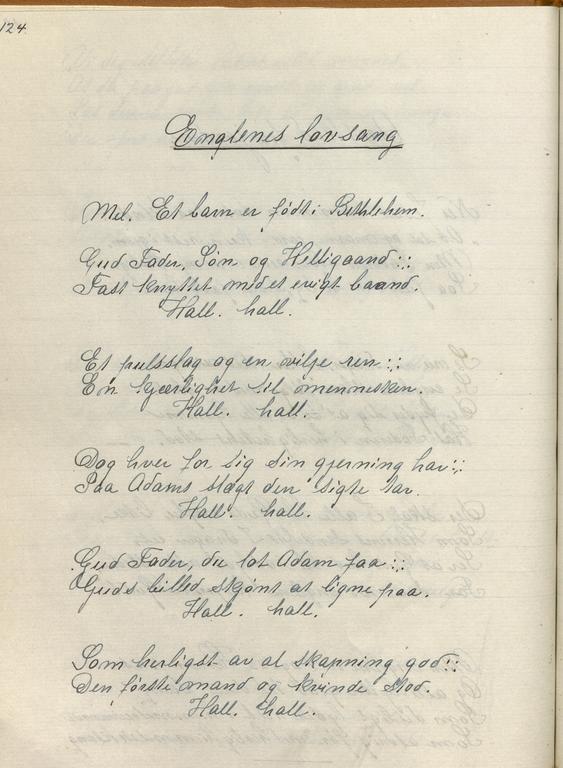 124.
Englenes lovsang
Mel. Et barn er født i Bethlehem.
Gud Fader, Søn og Helligaand :,:
Fast knyttet med et evigt baand.
Hall. hall.
Et pulsslag og en vilje ren :,:
En kjærlighet til mennesken.
Hall. hall.
Dog hver for sig sin gjerning har :,:
Paa Adams slægt den sigte tar.
Hall. hall.
Gud Fader, du lot Adam faa :,:
Guds billed skjønt at ligne paa.
Hall. hall.
Som herligst av al skapning god :,:
Den første mand og kvinde stod.
Hall. hall.